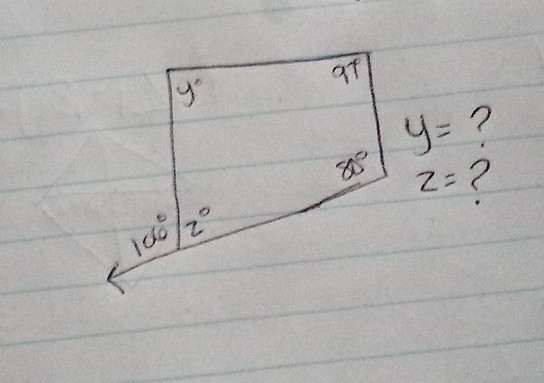 y°
97
y = ?
80°
z = ?
100°
z°